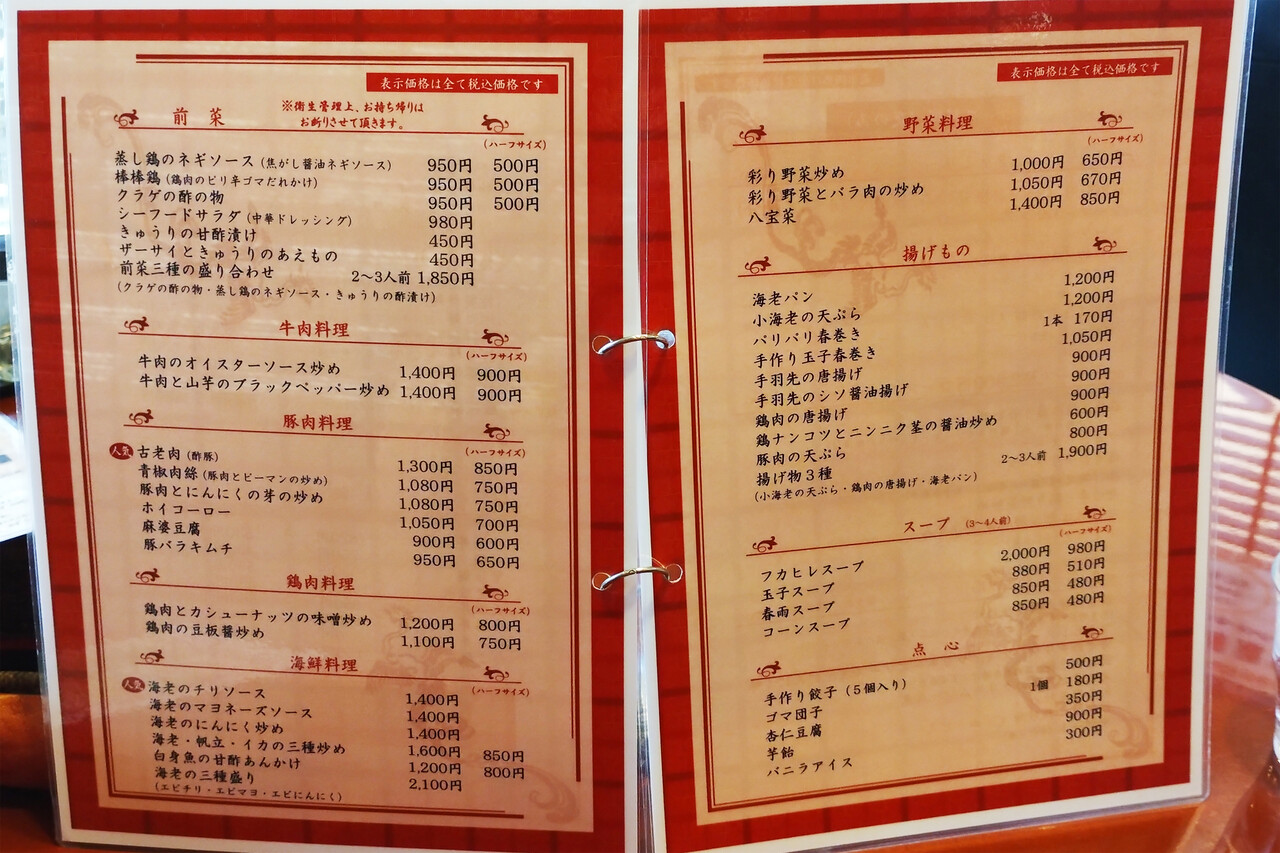 表示価格は全て税込価格です
前菜
※衛生管理上、お持ち帰りは
お断りさせて頂きます。
(ハーフサイズ)
蒸し鶏のネギソース(焦がし醤油ネギソース) 950円 500円
棒棒鶏(鶏肉のピリ辛ゴマだれかけ) 950円 500円
クラゲの酢の物 950円 500円
シーフードサラダ(中華ドレッシング) 980円
きゅうりの甘酢漬け 450円
ザーサイときゅうりのあえもの 450円
前菜三種の盛り合わせ 2〜3人前 1,850円
(クラゲの酢の物・蒸し鶏のネギソース・きゅうりの酢漬け)
牛肉料理
(ハーフサイズ)
牛肉のオイスターソース炒め 1,400円 900円
牛肉と山芋のブラックペッパー炒め 1,400円 900円
豚肉料理
(ハーフサイズ)
人気 古老肉(酢豚) 1,300円 850円
青椒肉絲(豚肉とピーマンの炒め) 1,080円 750円
豚肉とにんにくの芽の炒め 1,080円 750円
ホイコーロー 1,050円 700円
麻婆豆腐 900円 600円
豚バラキムチ 950円 650円
鶏肉料理
(ハーフサイズ)
鶏肉とカシューナッツの味噌炒め 1,200円 800円
鶏肉の豆板醤炒め 1,100円 750円
海鮮料理
(ハーフサイズ)
人気 海老のチリソース 1,400円
海老のマヨネーズソース 1,400円
海老のにんにく炒め 1,400円
海老・帆立・イカの三種炒め 1,600円 850円
白身魚の甘酢あんかけ 1,200円 800円
海老の三種盛り 2,100円
(エビチリ・エビマヨ・エビにんにく)
表示価格は全て税込価格です
野菜料理
(ハーフサイズ)
彩り野菜炒め 1,000円 650円
彩り野菜とバラ肉の炒め 1,050円 670円
八宝菜 1,400円 850円
揚げもの
海老パン 1,200円
小海老の天ぷら 1,200円
パリパリ春巻き 1本 170円
手作り玉子春巻き 1,050円
手羽先の唐揚げ 900円
手羽先のシソ醤油揚げ 900円
鶏肉の唐揚げ 900円
鶏ナンコツとニンニク茎の醤油炒め 600円
豚肉の天ぷら 800円
揚げ物3種 2〜3人前 1,900円
(小海老の天ぷら・鶏肉の唐揚げ・海老パン)
スープ (3〜4人前)
(ハーフサイズ)
フカヒレスープ 2,000円 980円
玉子スープ 880円 510円
春雨スープ 850円 480円
コーンスープ 850円 480円
点心
手作り餃子(5個入り) 500円
ゴマ団子 1個 180円
杏仁豆腐 350円
芋飴 900円
バニラアイス 300円